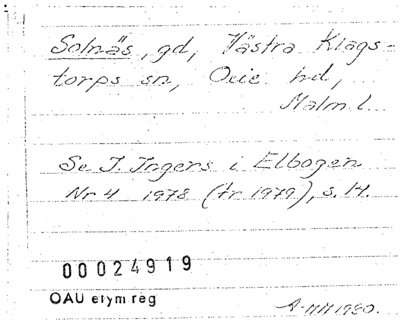 Solnäs, gd, Västra Klags-
torps sn, Oxie hd,
Malm l.
Se I. Ingers i Elbogen
Nr 4 1978 (tr 1979), s. 14.
00024919
OAU etym reg
1980.